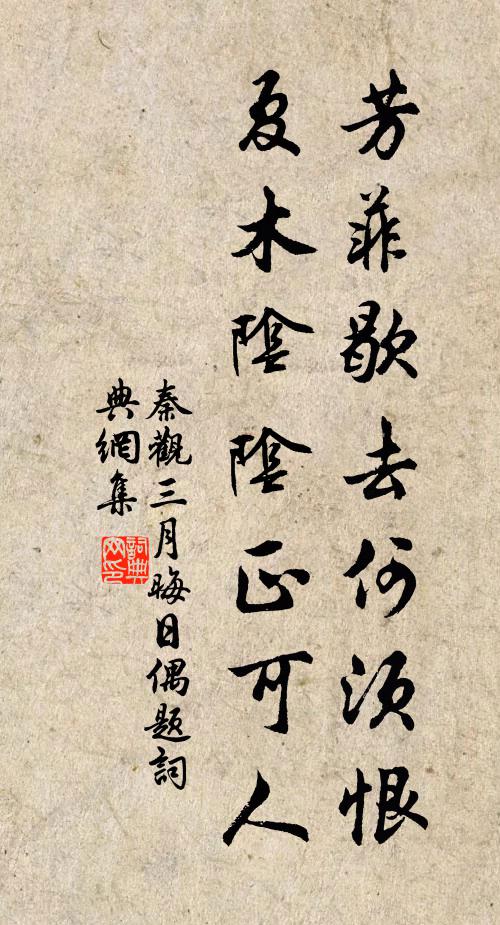 芳菲歇去何須恨
夏木陰陰正可人
秦觀三月晦日偶題詞
典網集
詞典
网印